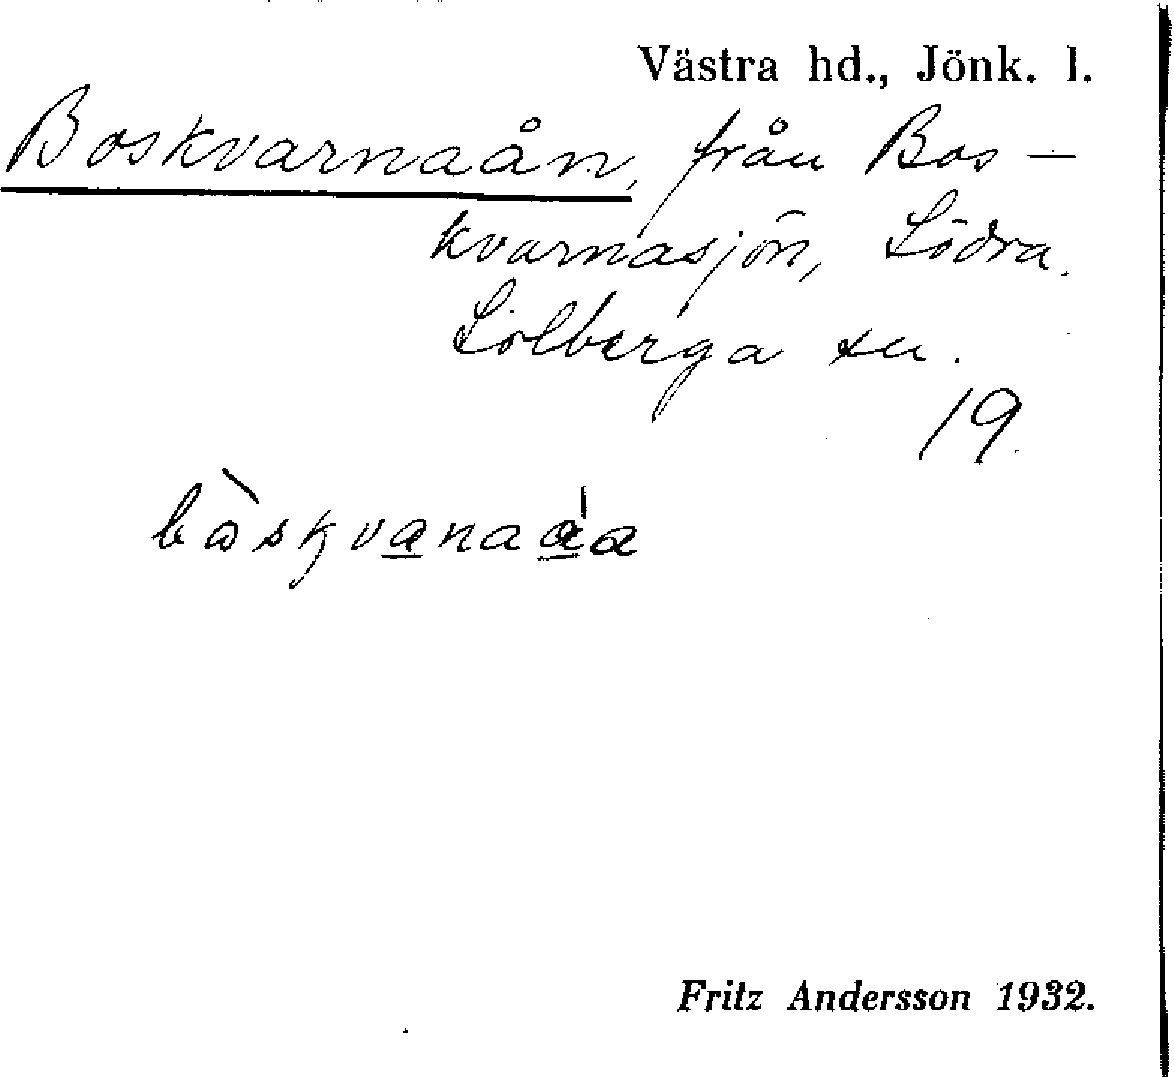 Västra hd., Jönk. l.
Boskvarnaån, från Bos-
kvarnasjön, Södra
Solberga sn.
19.
Fritz Andersson 1932.